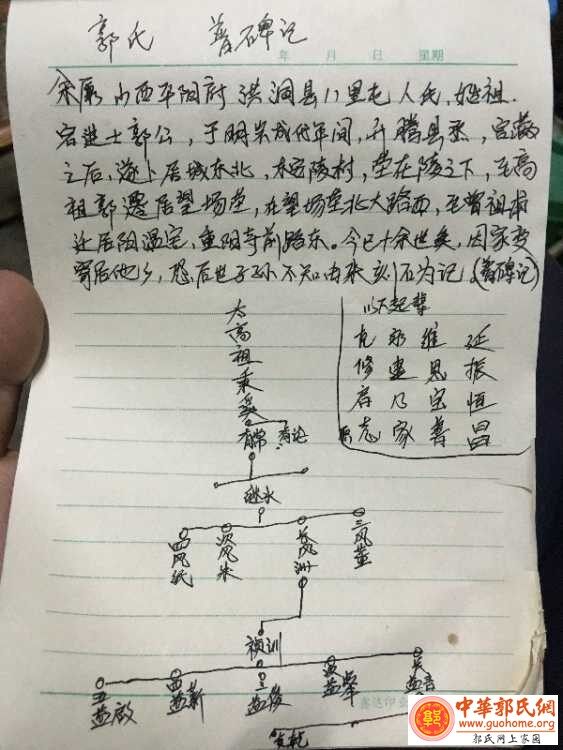 郭氏 旧碑记
年 月 日 星期
余原山西平阳府洪洞县 里屯人氏,始祖
宕进士郭公,于明朱成化年间,升腾县丞,官满
之后,遂卜居城东北,东定陵村,茔在陵之下,至高
祖郭迁居望场茔,在望场茔北大路西,至曾祖甫
迁居阳温屯,重阳寺前路东。今已十余世矣,因家贫
寄居他乡,恐后世子孙不知由来刻石为记(旧碑记)
以下起辈
九 永 维 延
修 建 恩 振
启 乃 宝 恒
志 家 善 昌
太高祖秉
有常 有论
继永
四凤纸 次凤朱 长凤洲 三凤董
祯训
五益啟 四益新 三益俊 次益举 长益吉
鑫达印业
中華郭氏網
www.guohome.org
郭氏网上家园